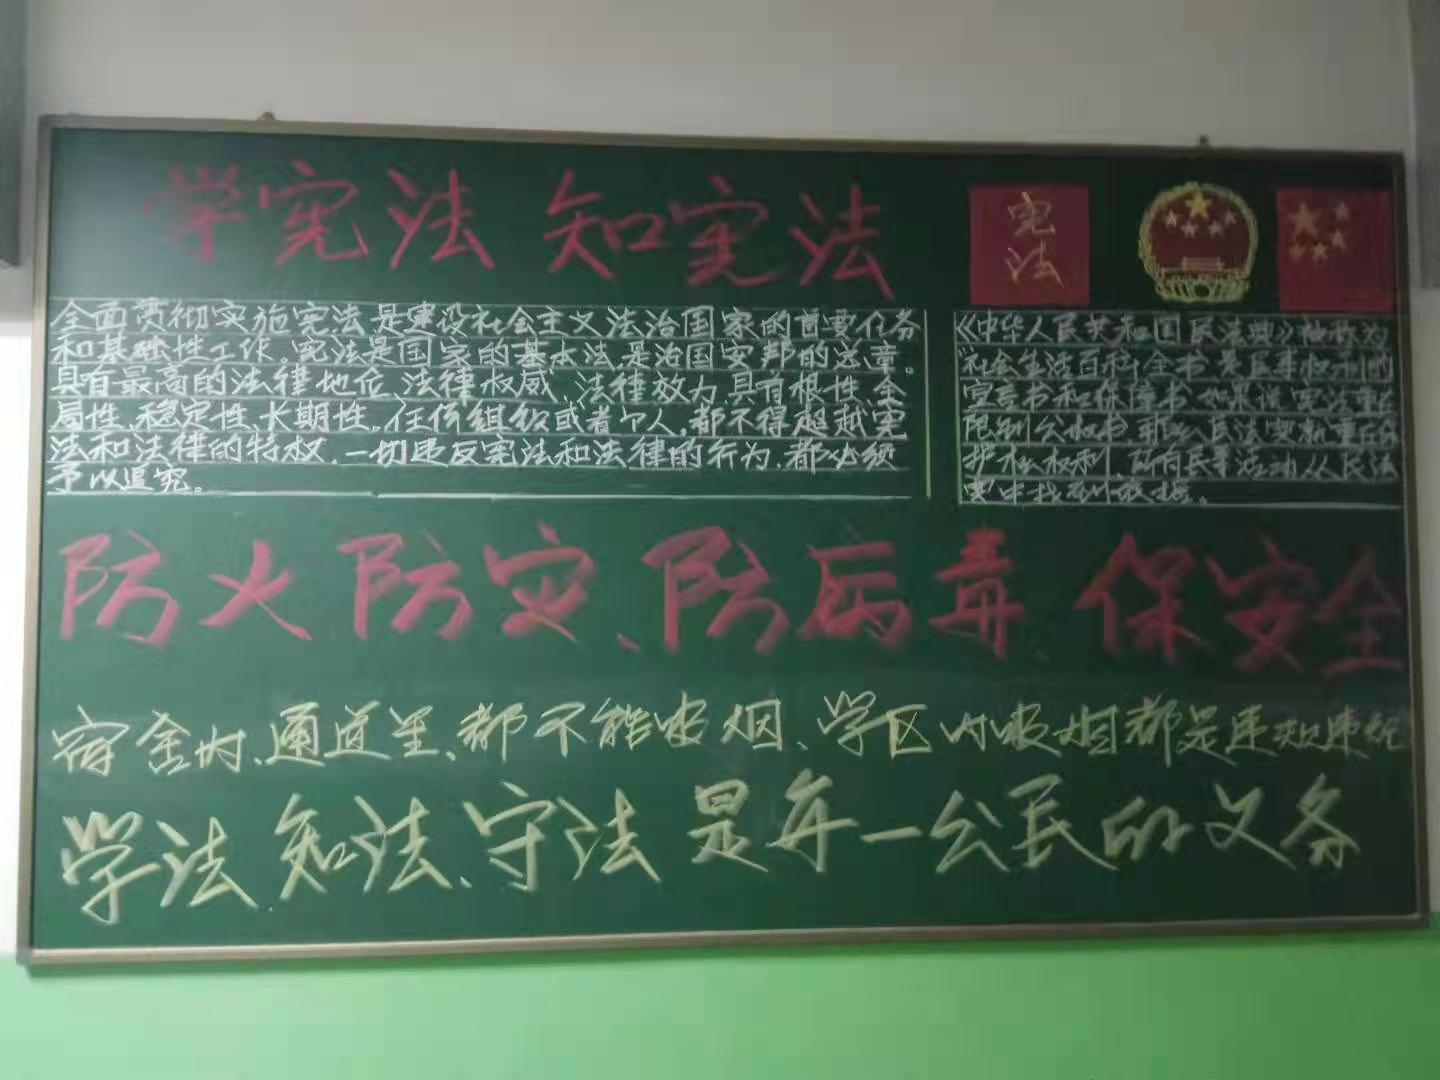 学宪法 知宪法
宪
法
全面贯彻实施宪法是建设社会主义法治国家的首要任务
和基础性工作。宪法是国家的基本法,是治国安邦的总章。
具有最高的法律地位、法律权威、法律效力,具有根性、全
局性、稳定性、长期性。任何组织或者个人,都不得超越宪
法和法律的特权,一切违反宪法和法律的行为,都必须
予以追究。
《中华人民共和国民法典》被称为
“社会生活百科全书”是民事权利的
宣言书和保障书,如果说宪法重在
限制公权力,那么民法典就重在保
护私权利,所有民事活动从民法
典中找到依据。
防火防灾、防病毒、保安全
宿舍内、通道里、都不能吸烟、学区内吸烟都是违规违纪
学法、知法、守法是每一公民的义务